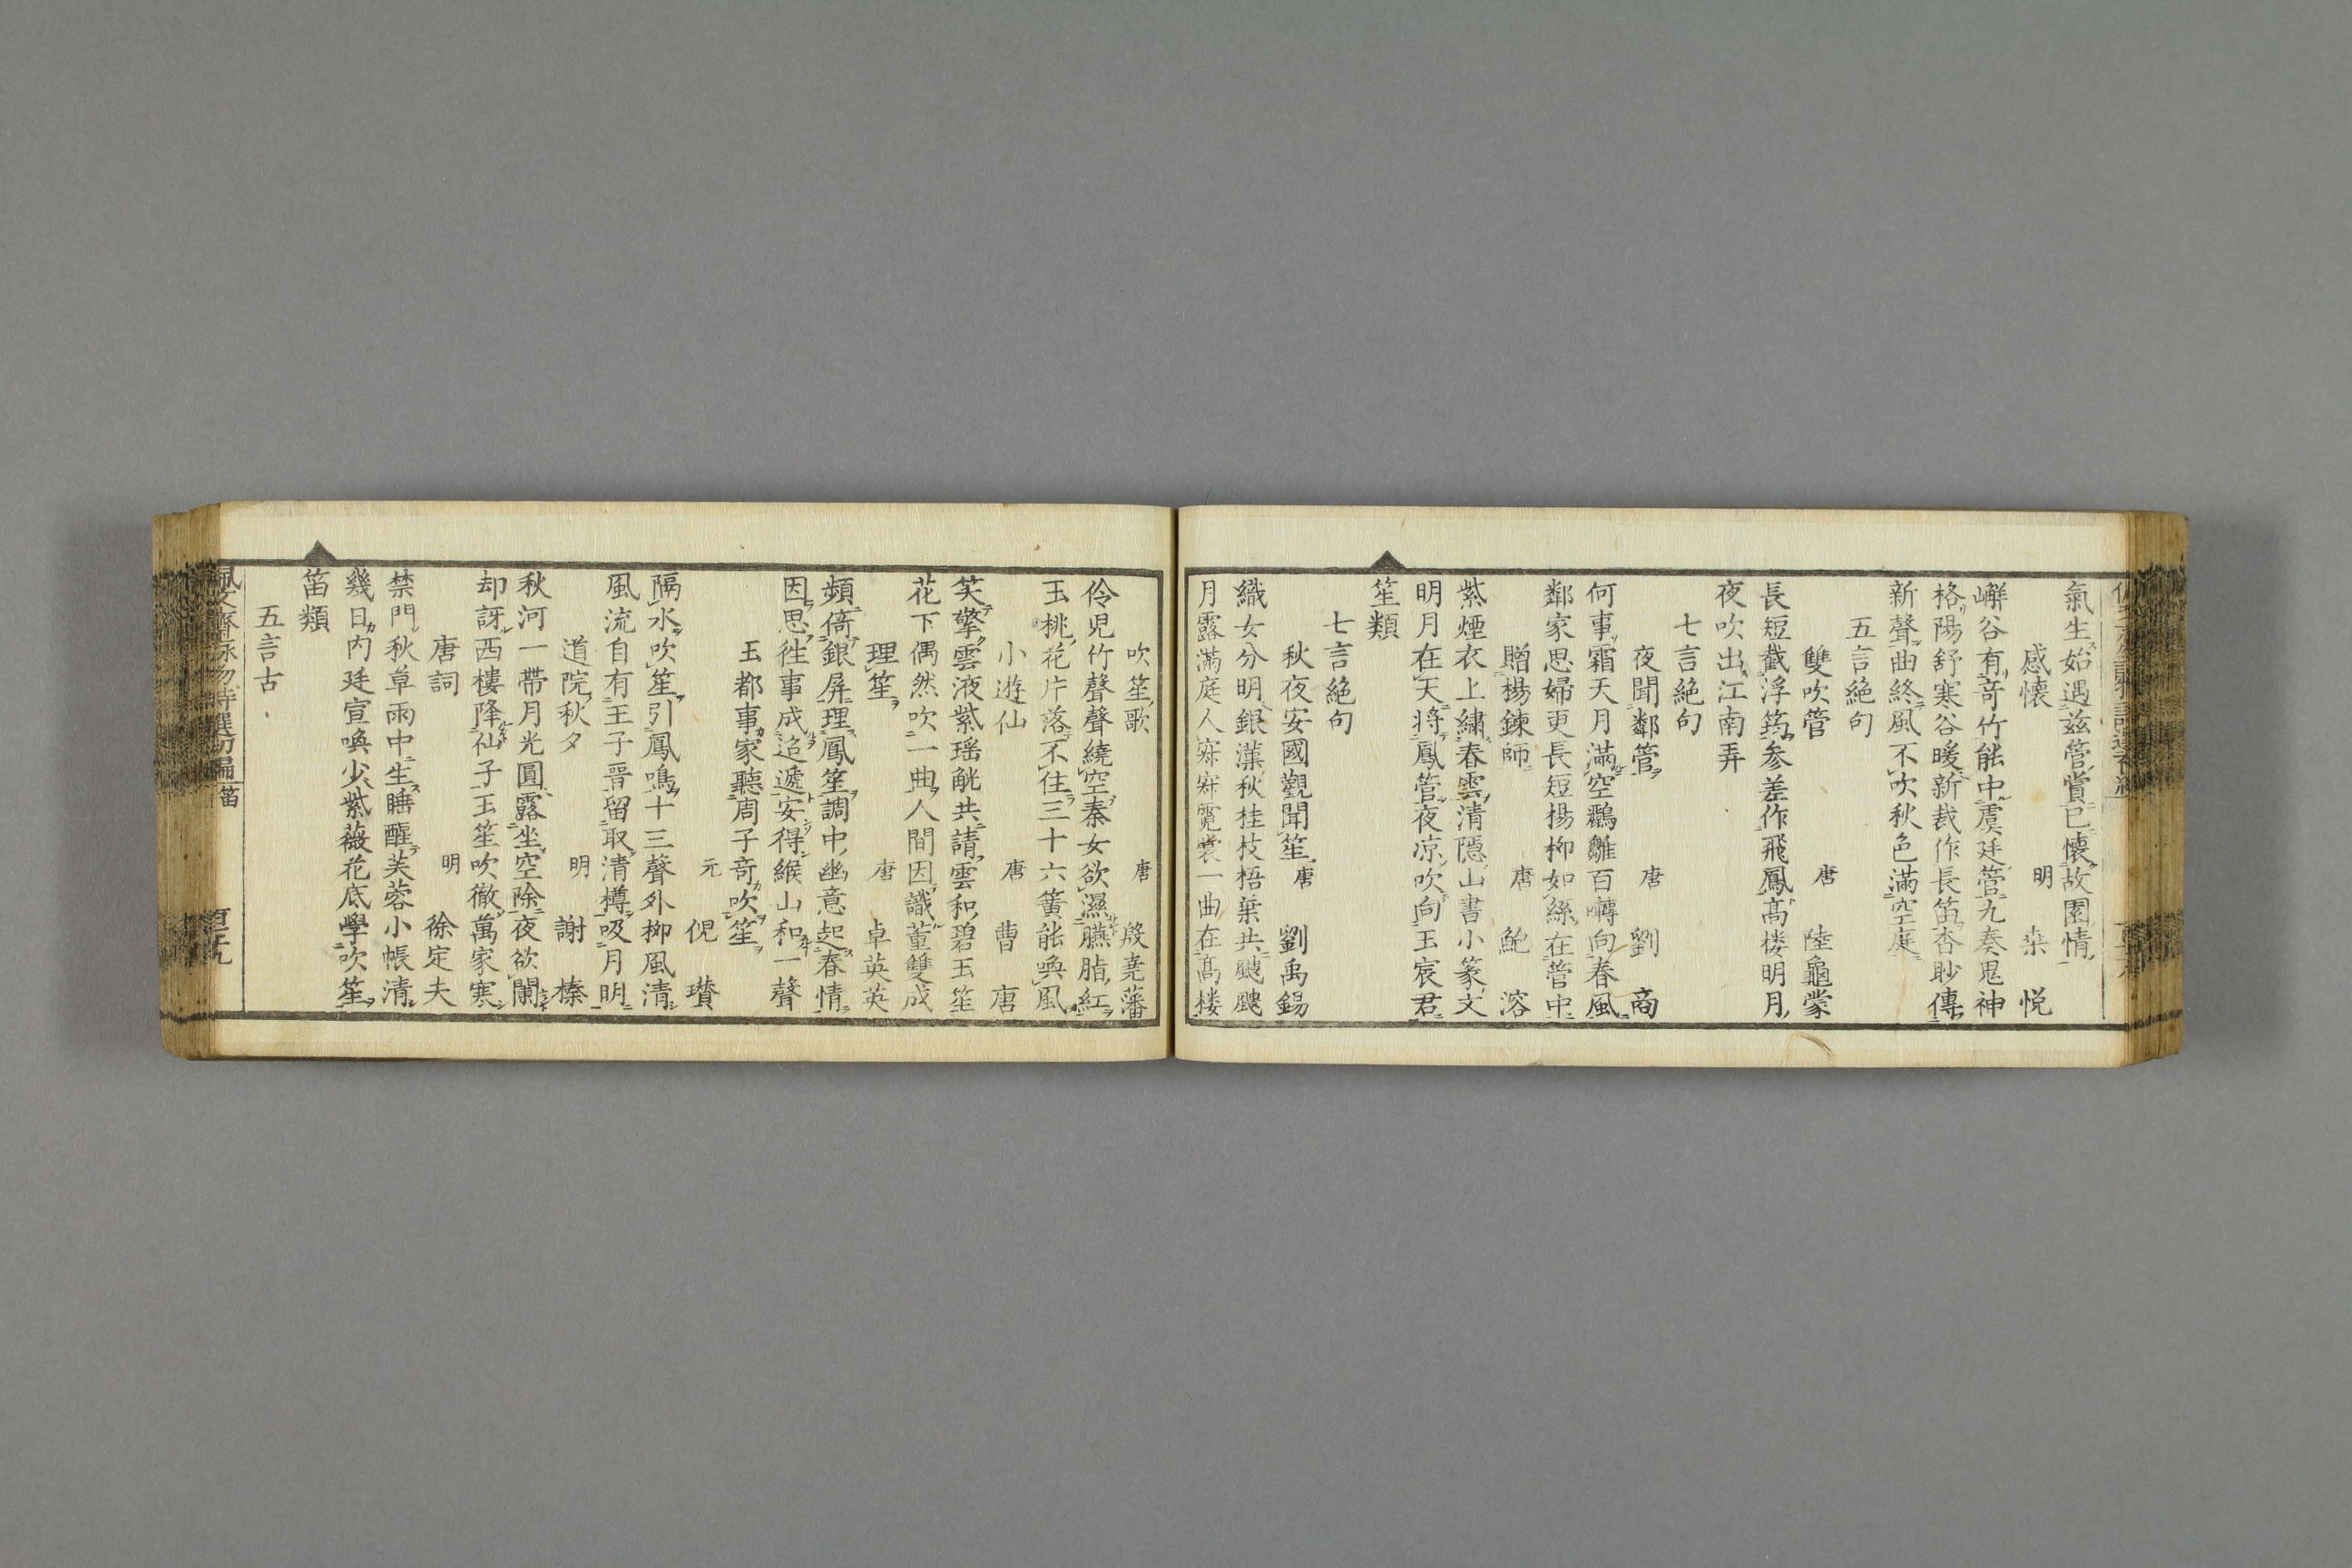 氣生始遇茲管賞已懷故園情
感懷 明 桒悅
嶰谷有竒竹能中虞廷管九奏鬼神
格陽舒寒谷暖新裁作長笛杳眇傳
新聲曲終風不吹秋色滿空庭
五言絶句
雙吹管 唐 陸龜蒙
長短截浮筠參差作飛鳳髙楼明月
夜吹出江南弄
七言絶句
夜聞鄰管 唐 劉商
何事霜天月滿空鸝雛百囀向春風
鄰家思婦更長短楊柳如絲在管中
贈楊鍊師 唐 鮑溶
紫煙衣上繡春雲清隱山書小篆文
明月在天将鳳管夜凉吹向玉宸君
笙類
七言絶句
秋夜安國觀聞笙 唐 劉禹錫
織女分明銀漢秋桂枝梧葉共颼颼
月露滿庭人寂寂霓裳一曲在髙楼
吹笙歌 唐 殷堯藩
伶児竹聲聲繞空秦女欲濕臙脂紅
玉桃花片落不住三十六簧能喚風
小遊仙 唐 曹唐
笑擎雲液紫瑶觥共請雲和碧玉笙
花下偶然吹一曲人間因識董雙成
理笙 唐 卓英英
頻倚銀屏理鳳笙調中幽意起春情
因思徃事成迢遞安得緱山和一聲
玉都事家聽周子竒吹笙
元 倪瓚
隔水吹笙引鳳鳴十三聲外柳風清
風流自有王子晋留取清樽吸月明
道院秋夕 明 謝榛
秋河一帶月光圓露坐空除夜欲闌
却訝西樓降仙子玉笙吹徹萬家寒
唐詞 明 徐定夫
禁門秋草雨中生睡醒芙蓉小帳清
幾日内廷宣喚少紫薇花底學吹笙
笛類
五言古